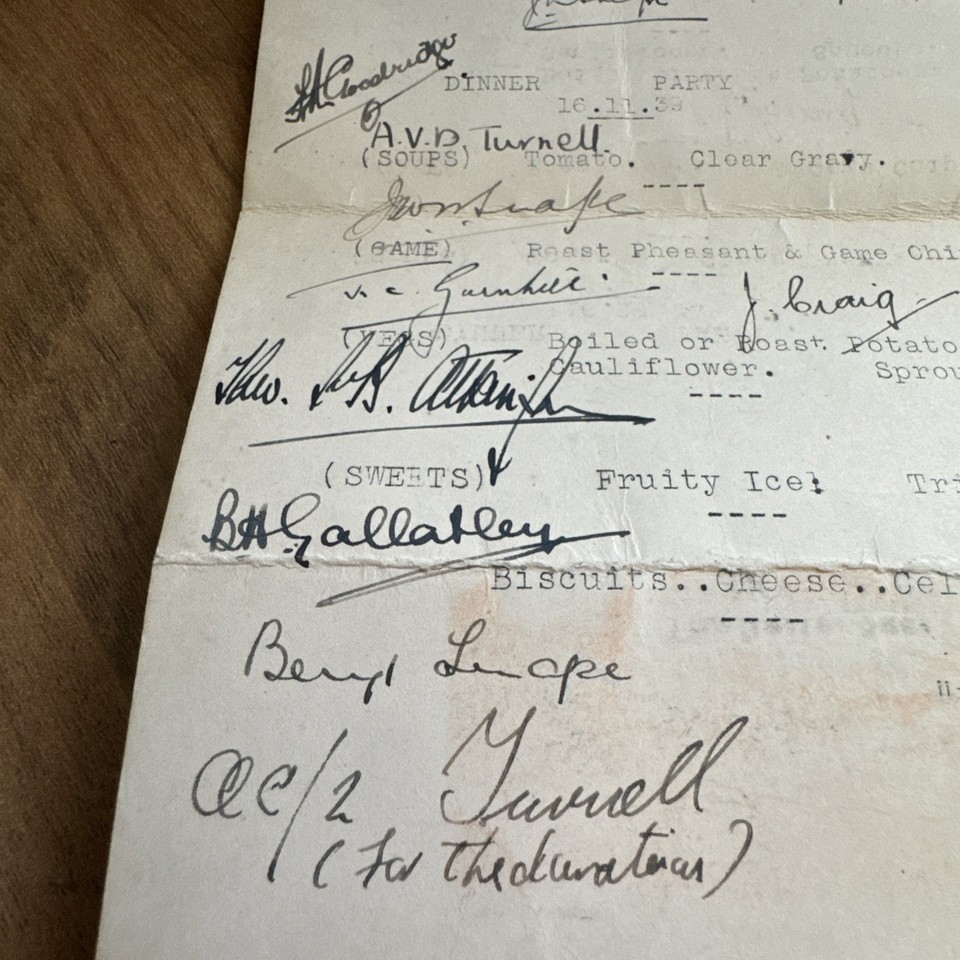 H Goodridge
DINNER PARTY
16.11.39
A.V.D. Turnell.
(SOUPS) Tomato. Clear Gravy.
----
Snape
(GAME) Roast Pheasant & Game Chi
----
v. c. J. Craig
(VEGS) Boiled or Roast. Potato
Cauliflower. Sprou
----
Theo. B. Atkin
(SWEETS) Fruity Ice! Tri
----
BH Gallatley
Biscuits..Cheese..Cel
----
Beryl Snape
AC/2 Turnell
(For the duration)